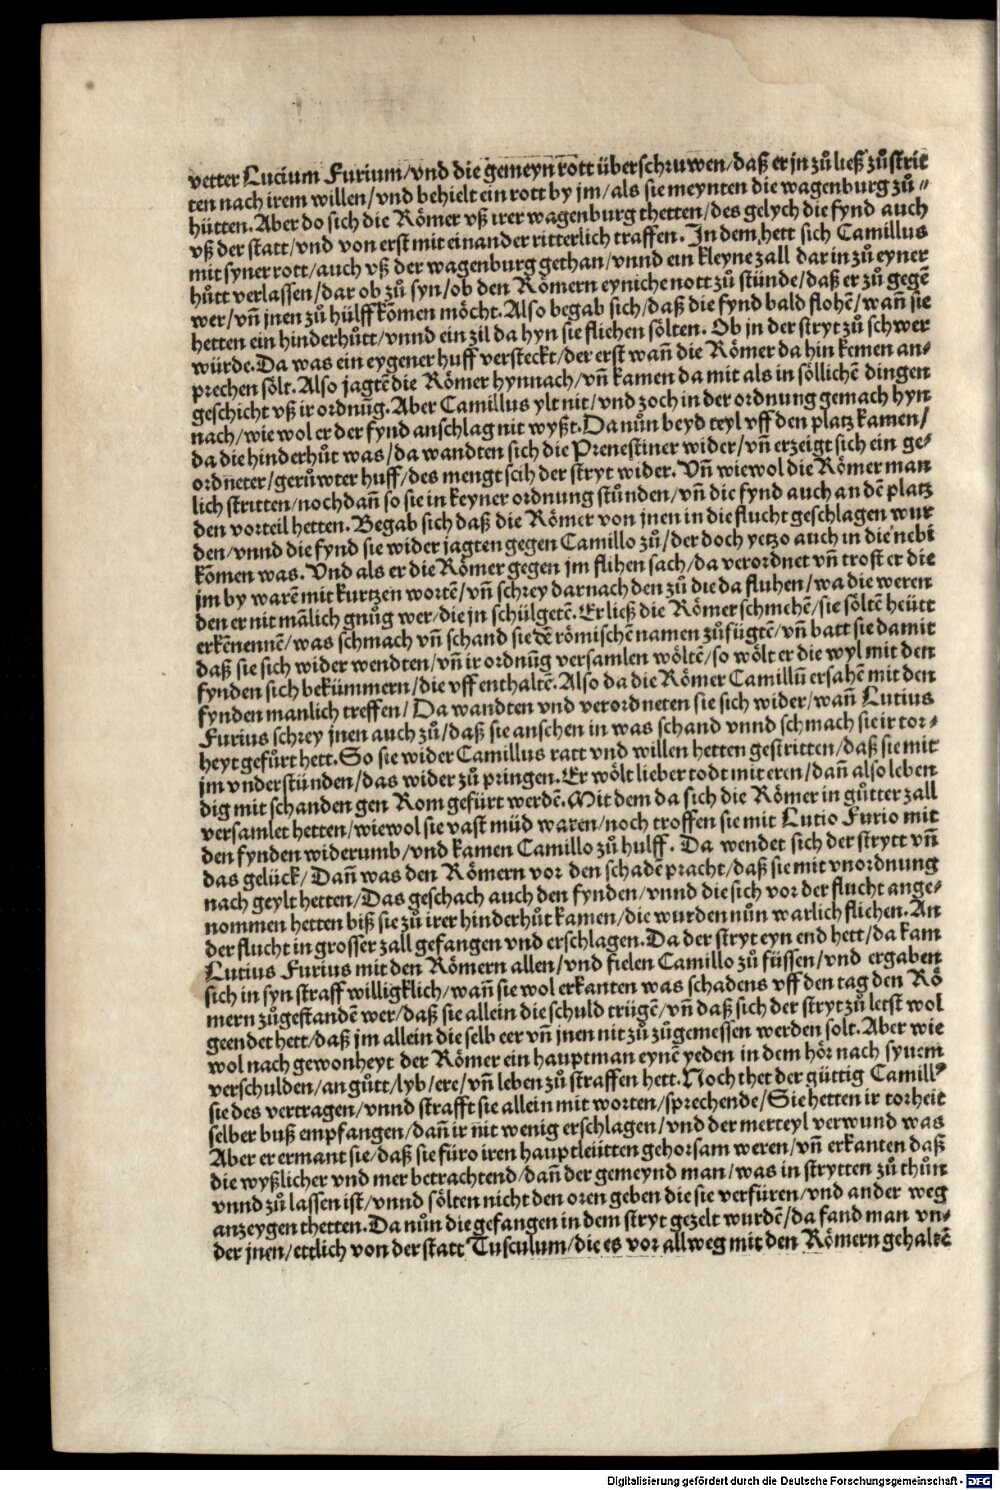 vetter Lucium Furium/vnd die gemeyn rott überschruwen/daß er jn zů ließ zů strit
ten nach irem willen/vnd behielt ein rott by jm/als sie meynten die wagenburg zů⸗
hütten. Aber do sich die Römer vß irer wagenburg thetten/des gelych die fynd auch
vß der statt/vnd von erst mit einander ritterlich traffen. In dem hett sich Camillus
mit syner rott/auch vß der wagenburg gethan/vnnd ein kleyne zall dar in zů eyner
hůtt verlassen/dar ob zů syn/ob den Römern eyniche nott zů stünde/daß er zů gegē
wer/vñ jnen zů hülff kōmen möcht. Also begab sich/daß die fynd bald flohē/wañ sie
hetten ein hinderhůtt/vnnd ein zil da hyn sie fliehen sölten. Ob jn der stryt zů schwer
würde. Da was ein eygener huff versteckt/der erst wañ die Römer da hin kemen an⸗
prechen sölt. Also jagtē die Römer hynnach/vñ kamen da mit als in söllichē dingen
geschicht vß ir ordnūg. Aber Camillus ylt nit/vnd zoch in der ordnung gemach hyn
nach/wie wol er der fynd anschlag nit wyßt. Da nůn beyd teyl vff den platz kamen/
da die hinderhůt was/da wandten sich die Prenestiner wider/vñ erzeigt sich ein ge⸗
ordneter/gerůwter huff/des mengt scih der stryt wider. Vñ wiewol die Römer man
lich stritten/nochdañ so sie in keyner ordnung stünden/vñ die fynd auch an dē platz
den vorteil hetten. Begab sich daß die Römer von jnen in die flucht geschlagen wur
den/vnnd die fynd sie wider jagten gegen Camillo zů/der doch yetzo auch in die nehi
kōmen was. Vnd als er die Römer gegen jm flihen sach/da verordnet vñ trost er die
jm by warē mit kurtzen wortē/vñ schrey darnach den zů die da fluhen/wa die weren
den er nit mālich gnůg wer/die jn schülgetē. Er ließ die Römer schmehē/sie söltē heütt
erkēnennē/was schmach vñ schand sie dē römischē namen zůfügtē/vñ batt sie damit
daß sie sich wider wendten/vñ ir ordnūg versamlen wöltē/so wölt er die wyl mit den
fynden sich bekümmern/die vff enthaltē. Also da die Römer Camillū ersahē mit den
fynden manlich treffen/Da wandten vnd verordneten sie sich wider/wañ Lutius
Furius schrey jnen auch zů/daß sie ansehen in was schand vnnd schmach sie ir tor⸗
heyt gefürt hett. So sie wider Camillus ratt vnd willen hetten gestritten/daß sie mit
jm vnderstünden/das wider zů pringen. Er wölt lieber todt mit eren/dañ also leben
dig mit schanden gen Rom gefürt werdē. Mit dem da sich die Römer in gůtter zall
versamlet hetten/wiewol sie vast müd waren/noch troffen sie mit Lutio Furio mit
den fynden widerumb/vnd kamen Camillo zů hulff. Da wendet sich der strytt vñ
das gelück/Dañ was den Römern vor den schadē pracht/daß sie mit vnordnung
nach geylt hetten/Das geschach auch den fynden/vnnd die sich vor der flucht ange⸗
nommen hetten biß sie zů irer hinderhůt kamen/die wurden nůn warlich fliehen. An
der flucht in grosser zall gefangen vnd erschlagen. Da der stryt eyn end hett/da kam
Lutius Furius mit den Römern allen/vnd fielen Camillo zů füssen/vnd ergaben
sich in syn straff willigklich/wañ sie wol erkanten was schadens vff den tag den Rö
mern zůgestandē wer/daß sie allein die schuld trügē/vñ daß sich der stryt zů letst wol
geendet hett/daß jm allein die selb eer vñ jnen nit zů zůgemessen werden solt. Aber wie
wol nach gewonheyt der Römer ein hauptman eynē yeden in dem hör nach synem
verschulden/an gůtt/lyb/ere/vñ leben zů straffen hett. Noch thet der güttig Camillꝰ
sie des vertragen/vnnd strafft sie allein mit worten/sprechende/Sie hetten ir torheit
selber buß empfangen/dañ ir nit wenig erschlagen/vnd der merteyl verwund was
Aber er ermant sie/daß sie füro iren hauptleütten gehorsam weren/vñ erkanten daß
die wyßlicher vnd mer betrachtend/dañ der gemeynd man/was in strytten zů thůn
vnnd zů lassen ist/vnnd sölten nicht den oren geben die sie verfüren/vnd ander weg
anzeygen thetten. Da nůn die gefangen in dem stryt gezelt wurdē/da fand man vn⸗
der jnen/ettlich von der statt Tusculum/die es vor allweg mit den Römern gehaltē
Digitalisierung gefördert durch die Deutsche Forschungsgemeinschaft - DFG